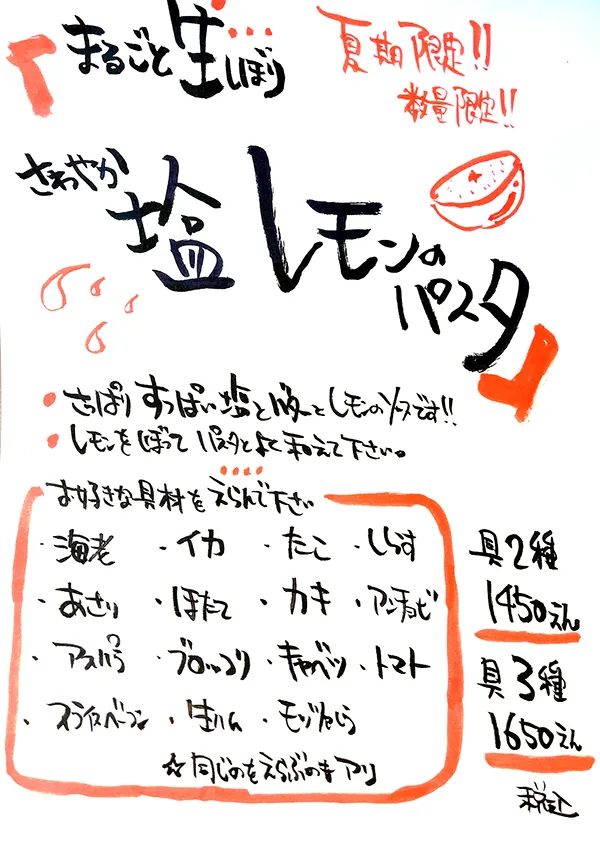 「まるごと生しぼり
夏期限定!!
数量限定!!
さわやか
塩レモンの
パスタ」
・さっぱりすっぱい塩とバターとレモンのソースです!!
・レモンをしぼってパスタとよく和えて下さい。
お好きな具材をえらんで下さい
・海老 ・イカ ・たこ ・しらす
・あさり ・ほたて ・カキ ・アンチョビ
・アスパラ ・ブロッコリ ・キャベツ ・トマト
・スライスベーコン ・生ハム ・モッツァレラ
☆同じのをえらぶのもアリ
具2種
1450えん
具3種
1650えん
税込